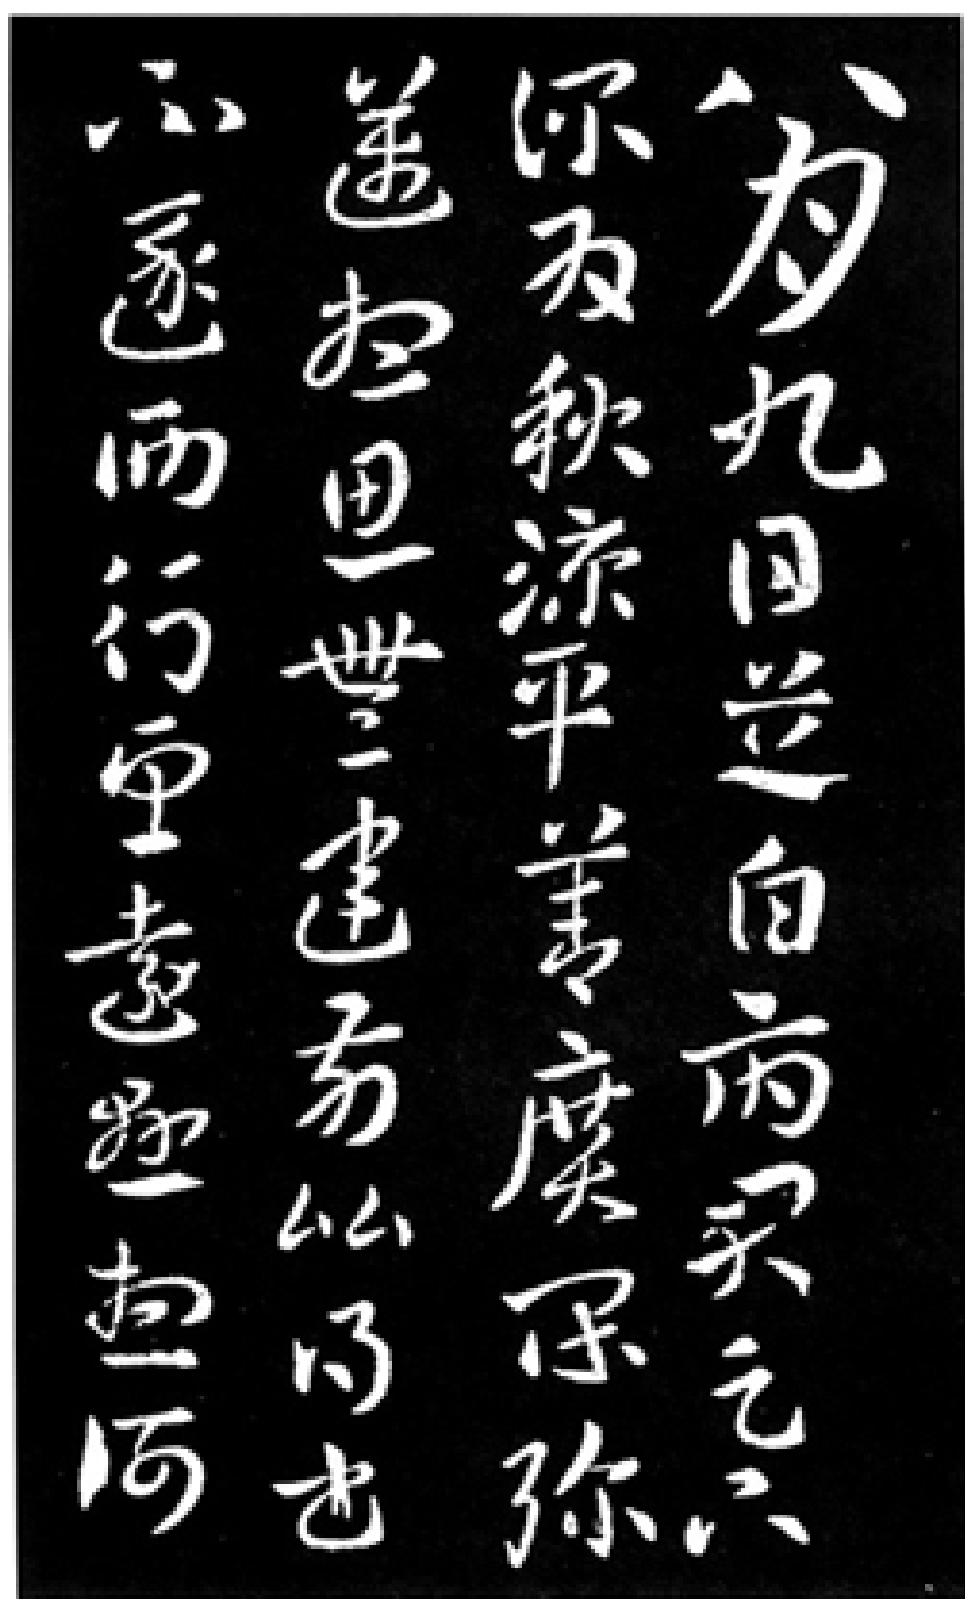 八月九日芝白府君足下
深為秋涼平善廣閑彌
邁想思無違前比得書
不遂西行望遠懸想何